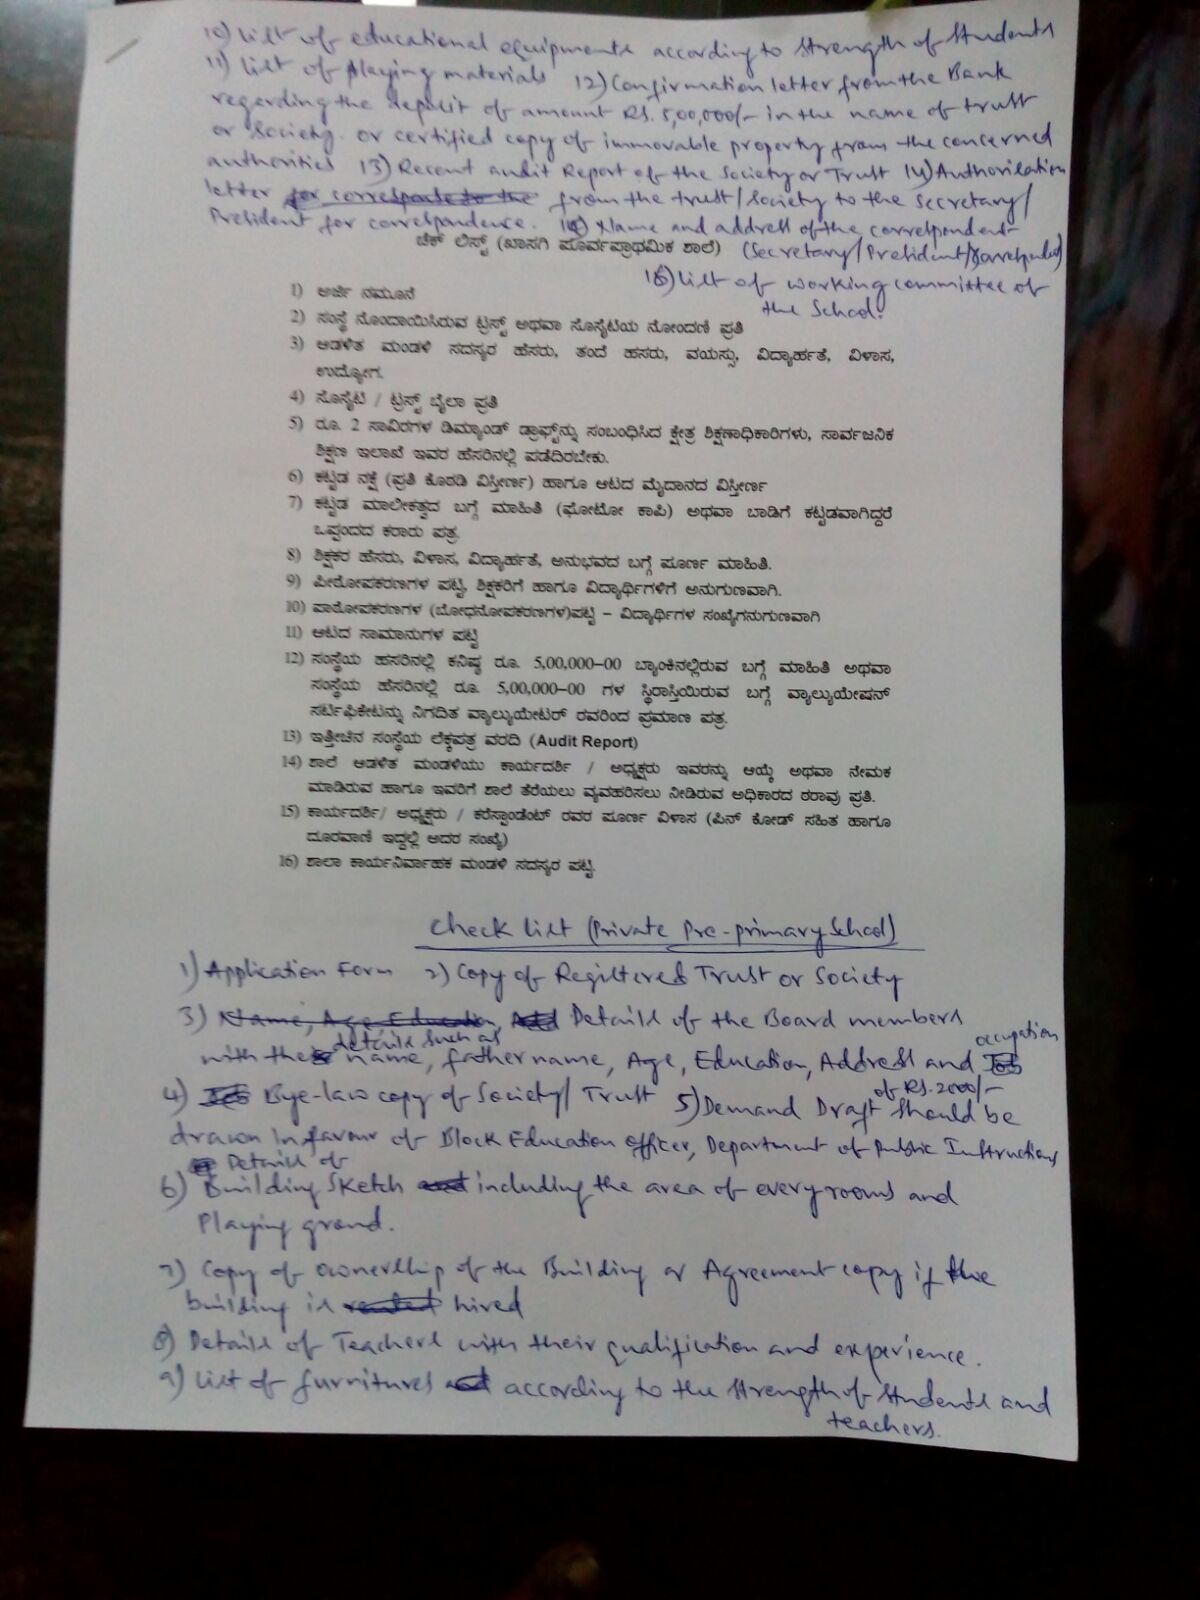 10) List of educational equipments according to strength of students
11) List of playing materials 12) Confirmation letter from the Bank
regarding the deposit of amount Rs. 5,00,000/- in the name of trust
or society. or certified copy of immovable property from the concerned
authorities 13) Recent audit Report of the Society or Trust 14) Authorisation
letter for correspondence to the from the trust/society to the secretary/
President for correspondence. 15) Name and address of the correspondent-
(Secretary/President/Correspondent)
16) List of working committee of
the School.
ಚೆಕ್ ಲಿಸ್ಟ್ (ಖಾಸಗಿ ಪೂರ್ವಪ್ರಾಥಮಿಕ ಶಾಲೆ)
1) ಅರ್ಜಿ ನಮೂನೆ
2) ಸಂಸ್ಥೆ ನೊಂದಾಯಿಸಿರುವ ಟ್ರಸ್ಟ್ ಅಥವಾ ಸೊಸೈಟಿಯ ನೋಂದಣಿ ಪ್ರತಿ
3) ಆಡಳಿತ ಮಂಡಳಿ ಸದಸ್ಯರ ಹೆಸರು, ತಂದೆ ಹಸರು, ವಯಸ್ಸು, ವಿದ್ಯಾರ್ಹತೆ, ವಿಳಾಸ,
ಉದ್ಯೋಗ.
4) ಸೊಸೈಟಿ / ಟ್ರಸ್ಟ್ ಬೈಲಾ ಪ್ರತಿ
5) ರೂ. 2 ಸಾವಿರಗಳ ಡಿಮ್ಯಾಂಡ್ ಡ್ರಾಫ್ಟ್‌ನ್ನು ಸಂಬಂಧಿಸಿದ ಕ್ಷೇತ್ರ ಶಿಕ್ಷಣಾಧಿಕಾರಿಗಳು, ಸಾರ್ವಜನಿಕ
ಶಿಕ್ಷಣ ಇಲಾಖೆ ಇವರ ಹೆಸರಿನಲ್ಲಿ ಪಡೆದಿರಬೇಕು.
6) ಕಟ್ಟಡ ನಕ್ಷೆ (ಪ್ರತಿ ಕೊಠಡಿ ವಿಸ್ತೀರ್ಣ) ಹಾಗೂ ಆಟದ ಮೈದಾನದ ವಿಸ್ತೀರ್ಣ
7) ಕಟ್ಟಡ ಮಾಲೀಕತ್ವದ ಬಗ್ಗೆ ಮಾಹಿತಿ (ಫೋಟೋ ಕಾಪಿ) ಅಥವಾ ಬಾಡಿಗೆ ಕಟ್ಟಡವಾಗಿದ್ದರೆ
ಒಪ್ಪಂದದ ಕರಾರು ಪತ್ರ.
8) ಶಿಕ್ಷಕರ ಹೆಸರು, ವಿಳಾಸ, ವಿದ್ಯಾರ್ಹತೆ, ಅನುಭವದ ಬಗ್ಗೆ ಪೂರ್ಣ ಮಾಹಿತಿ.
9) ಪೀಠೋಪಕರಣಗಳ ಪಟ್ಟಿ, ಶಿಕ್ಷಕರಿಗೆ ಹಾಗೂ ವಿದ್ಯಾರ್ಥಿಗಳಿಗೆ ಅನುಗುಣವಾಗಿ.
10) ಪಾಠೋಪಕರಣಗಳ (ಬೋಧನೋಪಕರಣಗಳ)ಪಟ್ಟಿ – ವಿದ್ಯಾರ್ಥಿಗಳ ಸಂಖ್ಯೆಗನುಗುಣವಾಗಿ
11) ಆಟದ ಸಾಮಾನುಗಳ ಪಟ್ಟಿ
12) ಸಂಸ್ಥೆಯ ಹಸರಿನಲ್ಲಿ ಕನಿಷ್ಠ ರೂ. 5,00,000–00 ಬ್ಯಾಂಕಿನಲ್ಲಿರುವ ಬಗ್ಗೆ ಮಾಹಿತಿ ಅಥವಾ
ಸಂಸ್ಥೆಯ ಹೆಸರಿನಲ್ಲಿ ರೂ. 5,00,000–00 ಗಳ ಸ್ಥಿರಾಸ್ತಿಯಿರುವ ಬಗ್ಗೆ ವ್ಯಾಲ್ಯುಯೇಷನ್
ಸರ್ಟಿಫಿಕೇಟನ್ನು ನಿಗದಿತ ವ್ಯಾಲ್ಯುಯೇಟರ್ ರವರಿಂದ ಪ್ರಮಾಣ ಪತ್ರ.
13) ಇತ್ತೀಚಿನ ಸಂಸ್ಥೆಯ ಲೆಕ್ಕಪತ್ರ ವರದಿ (Audit Report)
14) ಶಾಲೆ ಆಡಳಿತ ಮಂಡಳಿಯು ಕಾರ್ಯದರ್ಶಿ / ಅಧ್ಯಕ್ಷರು ಇವರನ್ನು ಆಯ್ಕೆ ಅಥವಾ ನೇಮಕ
ಮಾಡಿರುವ ಹಾಗೂ ಇವರಿಗೆ ಶಾಲೆ ತೆರೆಯಲು ವ್ಯವಹರಿಸಲು ನೀಡಿರುವ ಅಧಿಕಾರದ ಠರಾವು ಪ್ರತಿ.
15) ಕಾರ್ಯದರ್ಶಿ/ ಅಧ್ಯಕ್ಷರು / ಕರೆಸ್ಪಾಂಡೆಂಟ್ ರವರ ಪೂರ್ಣ ವಿಳಾಸ (ಪಿನ್ ಕೋಡ್ ಸಹಿತ ಹಾಗೂ
ದೂರವಾಣಿ ಇದ್ದಲ್ಲಿ ಅದರ ಸಂಖ್ಯೆ)
16) ಶಾಲಾ ಕಾರ್ಯನಿರ್ವಾಹಕ ಮಂಡಳಿ ಸದಸ್ಯರ ಪಟ್ಟಿ.
Check List (Private Pre-primary School)
1) Application Form 2) Copy of Registered Trust or Society
3) Name, Age Education, Add Details of the Board members
with the details such as name, father name, Age, Education, Address and occupation
4) Bye-law copy of Society/ Trust 5) Demand Draft of Rs. 2000/- should be
drawn in favour of Block Education officer, Department of Public Instructions
6) Details of Building Sketch and including the area of every rooms and
Playing ground.
7) Copy of ownership of the Building or Agreement copy if the
building is rented hired
8) Details of Teachers with their qualification and experience.
9) List of furnitures and according to the strength of students and
teachers.